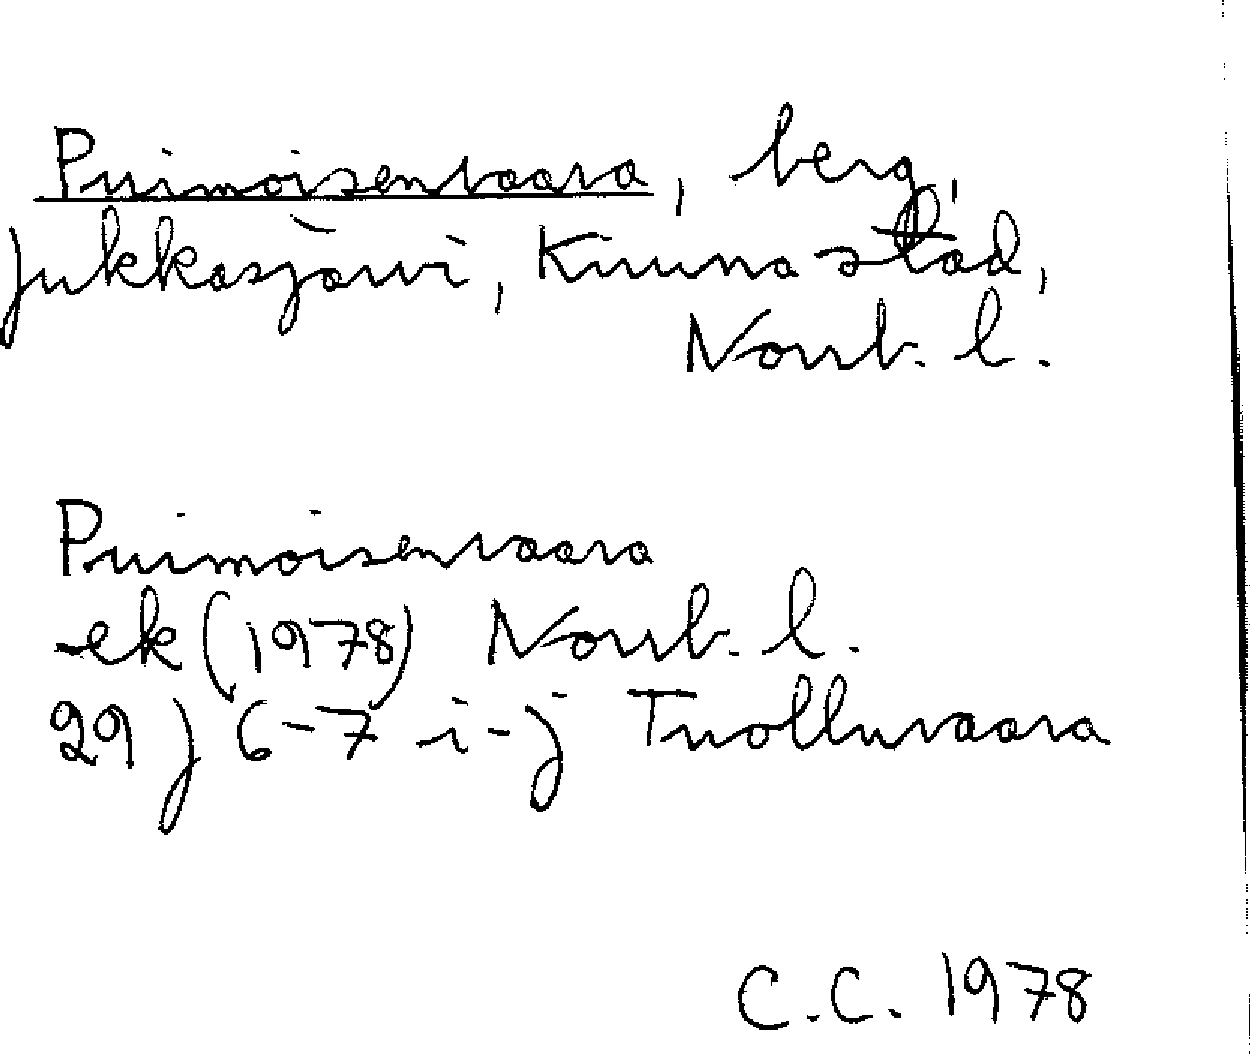 Puimoisenvaara, berg,
Jukkasjärvi, Kiruna stad,
Norrb. l.
Puimoisenvaara
ek (1978) Norrb. l.
29 J 6-7 i-j Tuolluvaara
C.C. 1978